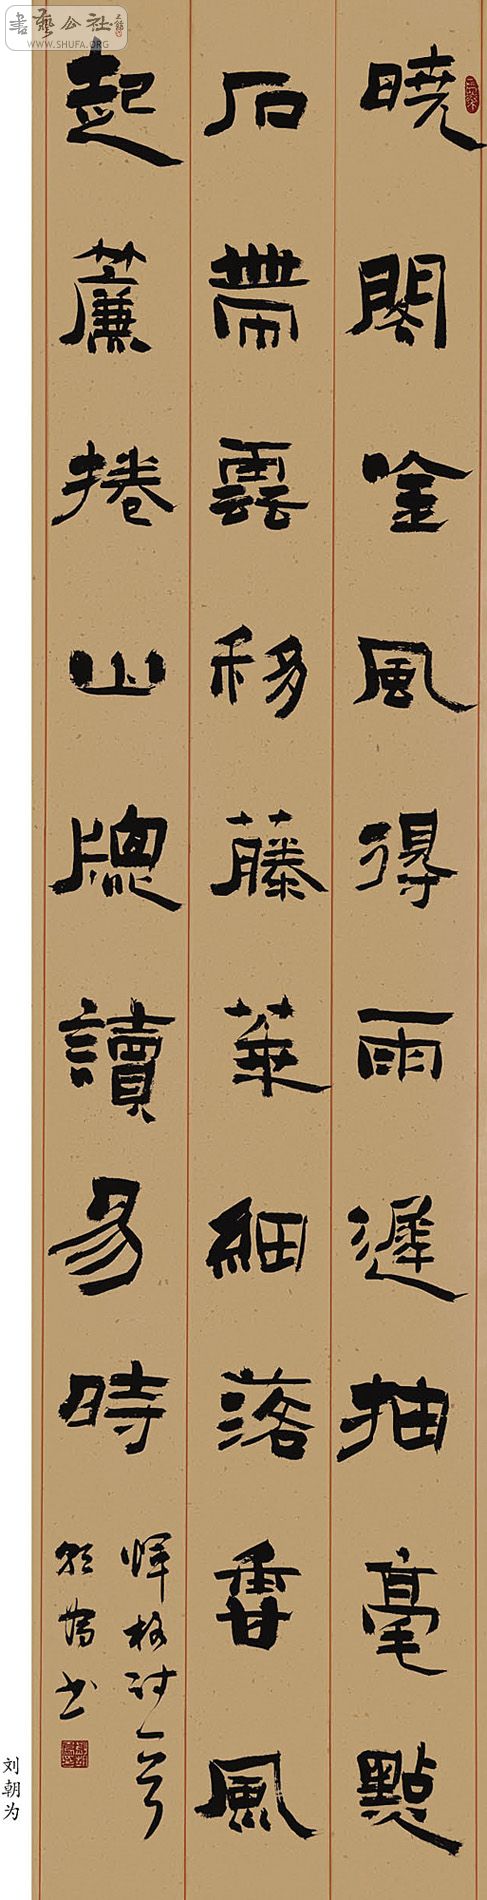 曉閣唫風得雨遲抽毫點
石帶雲移藤華細落香風
起簾捲山牕讀易時
惲格詩一首
朝為書
刘朝为
書藝公社
WWW.SHUFA.ORG